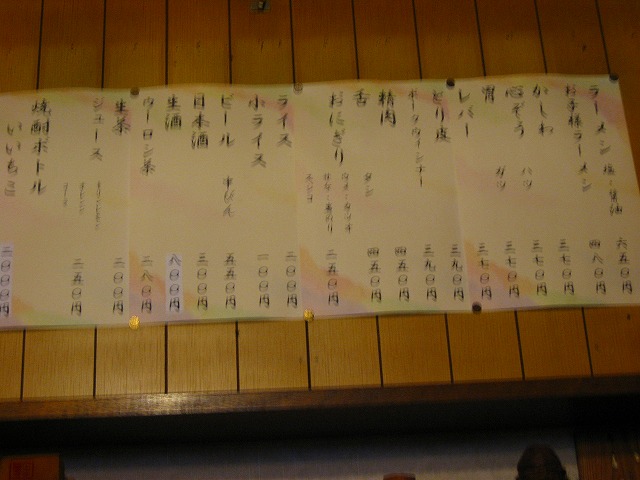 ラーメン 塩・醤油 六五〇円
お子様ラーメン 四八〇円
かしわ 三七〇円
心ぞう ハツ 三七〇円
胃 ガツ 三七〇円
レバー 三七〇円
とり皮 三九〇円
ポークウィンナー 三九〇円
精肉 四五〇円
舌 タン 四五〇円
おにぎり 二五〇円
ライス 二〇〇円
小ライス 一〇〇円
ビール 中びん 五五〇円
日本酒 三〇〇円
生酒 八〇〇円
ウーロン茶 二八〇円
生茶 二〇〇円
ジュース 二五〇円
焼酎ボトル
いいちこ 二〇〇〇円